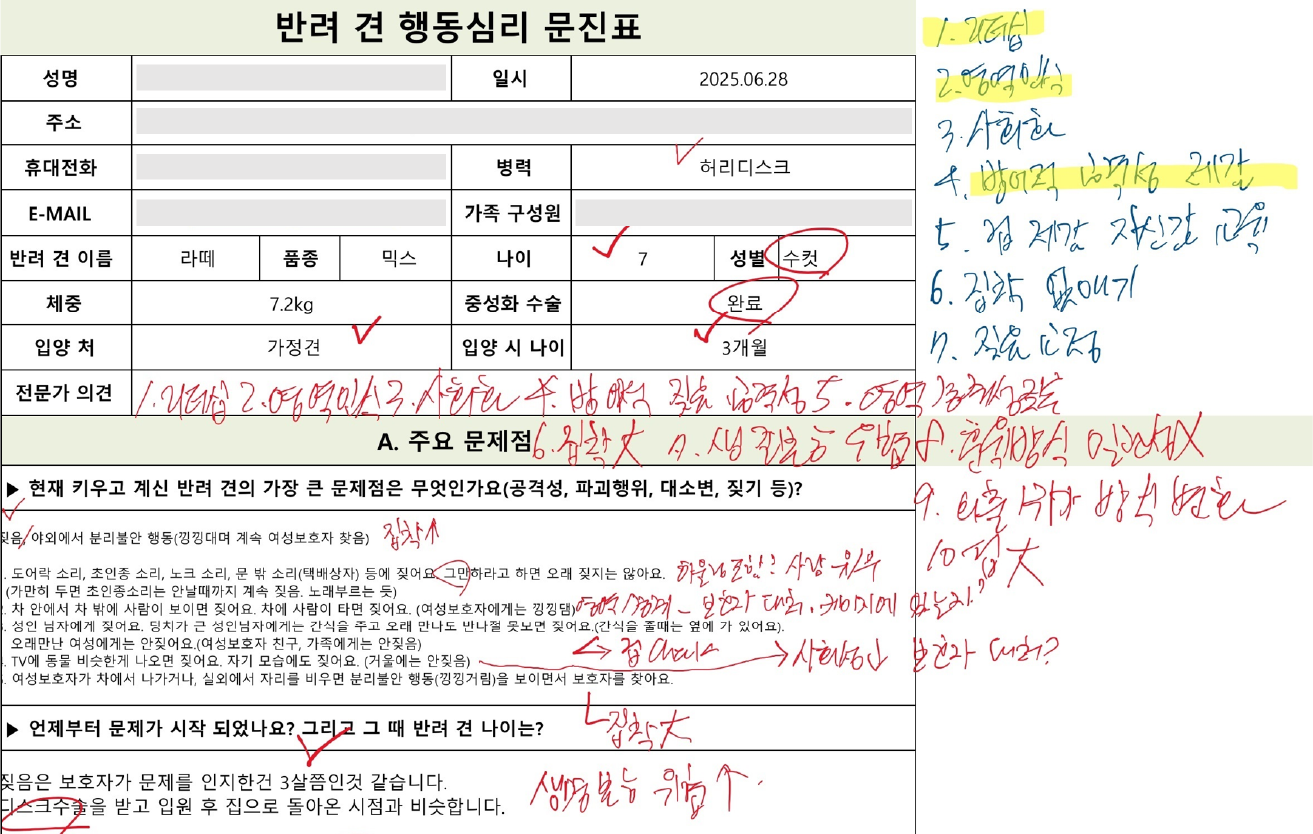 반려 견 행동심리 문진표
성명 일시 2025.06.28
주소
휴대전화 병력 허리디스크
E-MAIL 가족 구성원
반려 견 이름 라떼 품종 믹스 나이 7 성별 수컷
체중 7.2kg 중성화 수술 완료
입양 처 가정견 입양 시 나이 3개월
전문가 의견 1. 리더십 2. 영역인식 3. 사회화 4. 방어적 짖음 공격성 5. 영역
A. 주요 문제점 6. 집착 大 7. 생존본능 위협 8. 훈육방식 일관성X
▶ 현재 키우고 계신 반려 견의 가장 큰 문제점은 무엇인가요(공격성, 파괴행위, 대소변, 짖기 등)?
9. 외출 방식 변화
짖음, 야외에서 분리불안 행동(낑낑대며 계속 여성보호자 찾음) 집착↑
10. 겁 大
. 도어락 소리, 초인종 소리, 노크 소리, 문 밖 소리(택배상자) 등에 짖어요. 그만하라고 하면 오래 짖지는 않아요. 사람 유/무
(가만히 두면 초인종소리는 안날때까지 계속 짖음. 노래부르는 듯)
2. 차 안에서 차 밖에 사람이 보이면 짖어요. 차에 사람이 타면 짖어요. (여성보호자에게는 낑낑댐) 영역/경계 - 보호자 대처. 케이지에 있는지?
3. 성인 남자에게 짖어요. 덩치가 큰 성인남자에게는 간식을 주고 오래 만나도 만나절 못보면 짖어요.(간식을 줄때는 옆에 가 있어요).
오래만난 여성에게는 안짖어요.(여성보호자 친구, 가족에게는 안짖음)
. TV에 동물 비슷한게 나오면 짖어요. 자기 모습에도 짖어요. (거울에는 안짖음) 겁 사회성↓ 보호자 대처?
. 여성보호자가 차에서 나가거나, 실외에서 자리를 비우면 분리불안 행동(낑낑거림)을 보이면서 보호자를 찾아요.
집착大
▶ 언제부터 문제가 시작 되었나요? 그리고 그 때 반려 견 나이는?
짖음은 보호자가 문제를 인지한건 3살쯤인것 같습니다.
디스크수술을 받고 입원 후 집으로 돌아온 시점과 비슷합니다.
생존본능 위협↑
1. 리더십
2. 영역인식
3. 사회화
4. 방어적 공격성 제감
5. 겁 제감 자신감 교육
6. 집착 없애기
7. 짖음 교정